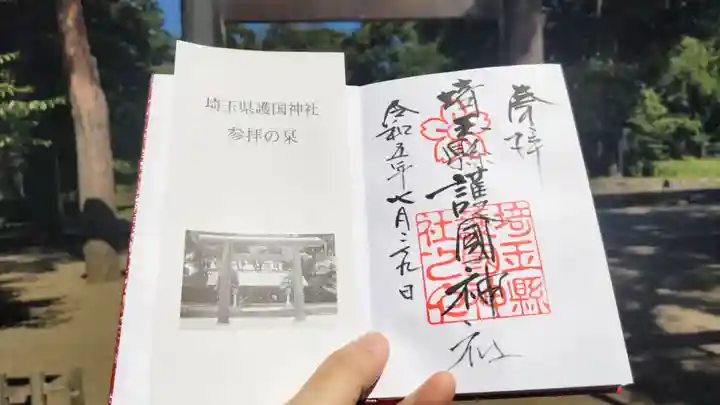 埼玉県護国神社
参拝の栞
奉拝
埼玉縣護國神社
令和五年七月二九日
埼玉縣
社之印